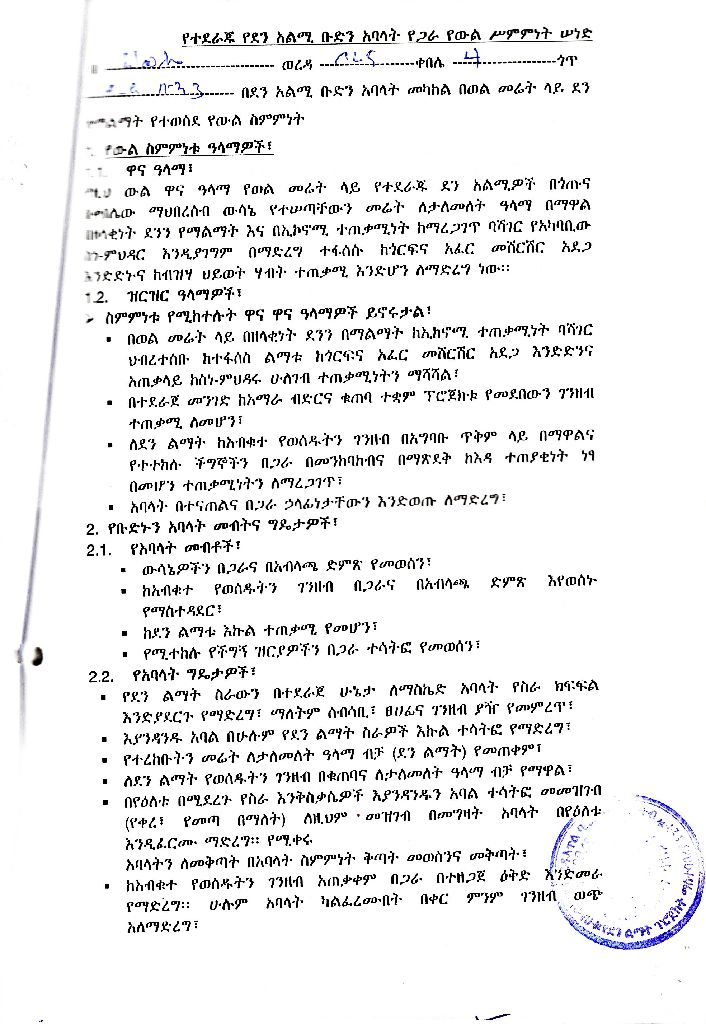 የተደራጁ የደን አልሚ ቡድን አባላት የጋራ የውል ሥምምነት ሠነድ
ወረዳ ቀበሌ 4 ጎጥ
በደን አልሚ ቡድን አባላት መካከል በወል መሬት ላይ ደን
የተወሰደ የውል ስምምነት
የውል ስምምነቱ ዓላማዎች፣
1.1. ዋና ዓላማ፣
ውል ዋና ዓላማ የወል መሬት ላይ የተደራጁ ደን አልሚዎች በጎጡና
ማህበረሰብ ውሳኔ የተሠጣቸውን መሬት ለታለመለት ዓላማ በማዋል
ደንን የማልማት እና በኢኮኖሚ ተጠቃሚነት ከማረጋገጥ ባሻገር የአካባቢው
እንዲያገግም በማድረግ ተፋሰሱ ከጎርፍና አፈር መሸርሸር አደጋ
እንድድኑና ከብዝሃ ህይወት ሃብት ተጠቃሚ እንድሆን ለማድረግ ነው።
1.2. ዝርዝር ዓላማዎች፣
➢ ስምምነቱ የሚከተሉት ዋና ዋና ዓላማዎች ይኖሩታል፣
▪ በወል መሬት ላይ በዘላቂነት ደንን በማልማት ከኢክኖሚ ተጠቃሚነት ባሻገር
ህብረተሰቡ ከተፋሰስ ልማቱ ከጎርፍና አፈር መሸርሸር አደጋ እንድድንና
አጠቃላይ ከስነ-ምህዳሩ ሁለገብ ተጠቃሚነትን ማሻሻል፣
▪ በተደራጀ መንገድ ከአማራ ብድርና ቁጠባ ተቋም ፕሮጀክቱ የመደበውን ገንዘብ
ተጠቃሚ ለመሆን፣
▪ ለደን ልማት ከአብቁተ የወሰዱትን ገንዘብ በአግባቡ ጥቅም ላይ በማዋልና
የተተከሉ ችግኞችን በጋራ በመንከባከብና በማጽደቅ ከእዳ ተጠያቂነት ነፃ
በመሆን ተጠቃሚነትን ለማረጋገጥ፣
▪ አባላት በተናጠልና በጋራ ኃላፊነታቸውን እንድወጡ ለማድረግ፣
2. የቡድኑን አባላት መብትና ግዴታዎች፣
2.1. የአባላት መብቶች፣
▪ ውሳኔዎችን በጋራና በአብላጫ ድምጽ የመወሰን፣
▪ ከአብቁተ የወሰዱትን ገንዘብ በጋራና በአብላጫ ድምጽ እየወሰኑ
የማስተዳደር፣
▪ ከደን ልማቱ እኩል ተጠቃሚ የመሆን፣
▪ የሚተከሉ የችግኝ ዝርያዎችን በጋራ ተሳትፎ የመወሰን፣
2.2. የአባላት ግዴታዎች፣
▪ የደን ልማት ስራውን በተደራጀ ሁኔታ ለማስኬድ አባላት የስራ ክፍፍል
እንድያደርጉ የማድረግ፣ ማለትም ሰብሳቢ፣ ፀሀፊና ገንዘብ ያዥ የመምረጥ፣
▪ እያንዳንዱ አባል በሁሉም የደን ልማት ስራዎች እኩል ተሳትፎ የማድረግ፣
▪ የተረከቡትን መሬት ለታለመለት ዓላማ ብቻ (ደን ልማት) የመጠቀም፣
▪ ለደን ልማት የወሰዱትን ገንዘብ በቁጠባና ለታለመለት ዓላማ ብቻ የማዋል፣
▪ በየዕለቱ በሚደረጉ የስራ እንቅስቃሴዎች እያንዳንዱን አባል ተሳትፎ መመዝገብ
(የቀረ፣ የመጣ በማለት) ለዚህም መዝገብ በመግዛት አባላት በየዕለቱ
እንዲፈርሙ ማድረግ። የሚቀሩ
አባላትን ለመቅጣት በአባላት ስምምነት ቅጣት መወሰንና መቅጣት፣
▪ ከአብቁተ የወሰዱትን ገንዘብ አጠቃቀም በጋራ በተዘጋጀ ዕቅድ እንድመራ
የማድረግ። ሁሉም አባላት ካልፈረሙበት በቀር ምንም ገንዘብ ወጭ
አለማድረግ፣